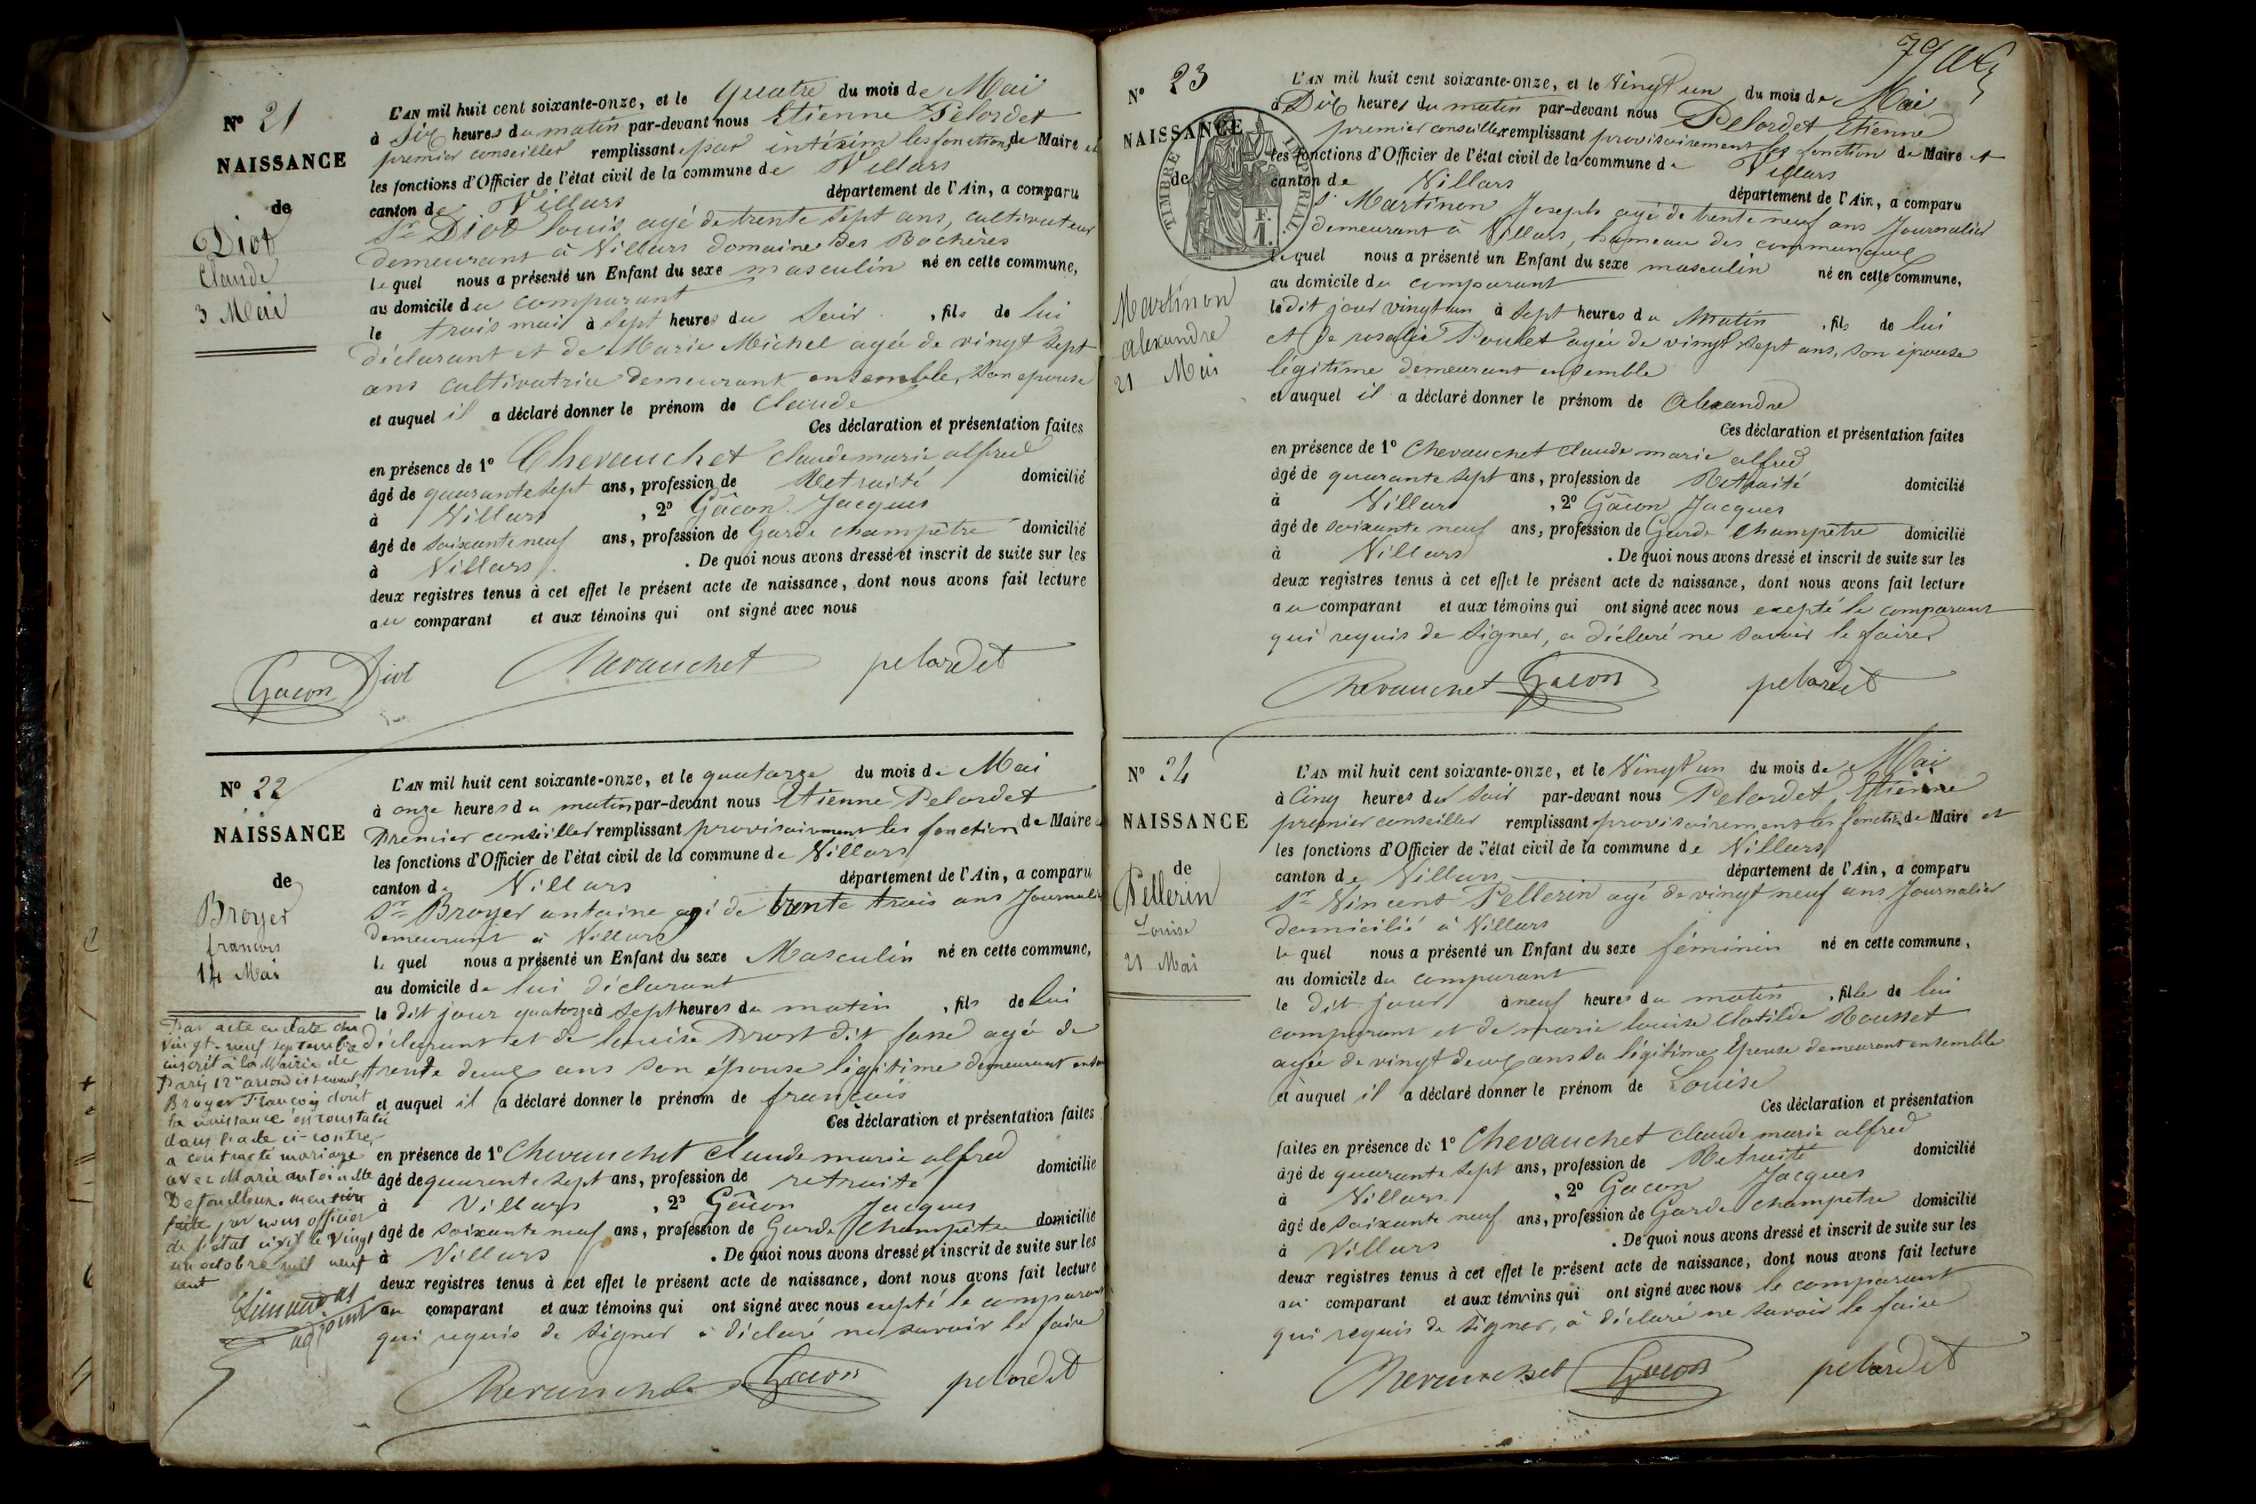 N° 21
NAISSANCE
de
Diot
Claude
3 Mai
L'AN mil huit cent soixante-onze, et le Quatre du mois de Mai
à Dix heures du matin par-devant nous Etienne Pelordet
premier conseiller remplissant par intérim les fonctions de Maire et
les fonctions d'Officier de l'état civil de la commune de Villars
canton de Villars département de l'Ain, a comparu
Sr Diot louis agé de trente sept ans, cultivateur
demeurant à Villars domaine des Rochères
lequel nous a présenté un Enfant du sexe masculin né en cette commune,
au domicile du comparant
le trois mai à sept heures du soir, fils de lui
déclarant et de Marie Michel agée de vingt sept
ans cultivatrice demeurant ensemble, son epouse
et auquel il a déclaré donner le prénom de Claude
Ces déclaration et présentation faites
en présence de 1° Chevauchet claude marie alfred
âgé de quarante sept ans, profession de Retraité domicilié
à Villars, 2° Gâcon Jacques
âgé de soixante neuf ans, profession de Garde champêtre domicilié
à Villars. De quoi nous avons dressé et inscrit de suite sur les
deux registres tenus à cet effet le présent acte de naissance, dont nous avons fait lecture
au comparant et aux témoins qui ont signé avec nous
Gacon Diot Chevauchet pelordet
N° 22
NAISSANCE
de
Broyer
francois
14 Mai
L'AN mil huit cent soixante-onze, et le quatorze du mois de Mai
à onze heures du matin par-devant nous Etienne Pelordet
Premier conseiller remplissant provisoirement les fonction de Maire
les fonctions d'Officier de l'état civil de la commune de Villars
canton de Villars département de l'Ain, a comparu
Sr Broyer antoine agé de trente trois ans Journalier
demeurant à Villars
lequel nous a présenté un Enfant du sexe Masculin né en cette commune,
au domicile de lui déclarant
le dit jour quatorze à sept heures du matin, fils de lui
déclarant et de louise Drost dit fassé agée de
trente deux ans son épouse légitime demeurant
et auquel il a déclaré donner le prénom de francois
Ces déclaration et présentation faites
en présence de 1° Chevauchet claude marie alfred
âgé de quarente sept ans, profession de retraité domicilié
à Villars, 2° Gâcon Jacques
âgé de soixante neuf ans, profession de Garde Champêtre domicilié
à Villars. De quoi nous avons dressé et inscrit de suite sur les
deux registres tenus à cet effet le présent acte de naissance, dont nous avons fait lecture
au comparant et aux témoins qui ont signé avec nous exepté le comparant
qui requis de signer a déclaré ne savoir le faire
Chevauchet Gacon pelordet
Par acte en date du
vingt-neuf septembre
inscrit à la Mairie de
Paris 12e arrondissement,
Broyer François dont
la naissance est constatée
dans l'acte ci-contre,
a contracté mariage
avec Marie antoinette
mention
faite par nous officier
de l'état civil le vingt
un octobre mil neuf
cent
adjoint
79
N° 23
NAISSANCE
de
TIMBRE IMPÉRIAL
Martinon
Alexandre
21 Mai
L'AN mil huit cent soixante-onze, et le Vingt un du mois de Mai
à Dix heures du matin par-devant nous Pelordet, Etienne
premier conseiller remplissant provisoirement les fonction de Maire et
les fonctions d'Officier de l'état civil de la commune de Villars
canton de Villars département de l'Ain, a comparu
Sr Martinon Joseph agé de trente neuf ans Journalier
demeurant à Villars, hameau des communaux
lequel nous a présenté un Enfant du sexe masculin né en cette commune,
au domicile du comparant
le dit jour vingt un à sept heures du Matin, fils de lui
et de rosalie Poulet agée de vingt sept ans, son épouse
légitime demeurant ensemble
et auquel il a déclaré donner le prénom de Alexandre
Ces déclaration et présentation faites
en présence de 1° Chevauchet claude marie alfred
âgé de quarante sept ans, profession de Retraité domicilié
à Villars, 2° Gâcon Jacques
âgé de soixante neuf ans, profession de Garde Champêtre domicilié
à Villars. De quoi nous avons dressé et inscrit de suite sur les
deux registres tenus à cet effet le présent acte de naissance, dont nous avons fait lecture
au comparant et aux témoins qui ont signé avec nous exepté le comparant
qui requis de signer, a déclaré ne savoir le faire
Chevauchet Gacon pelordet
N° 24
NAISSANCE
de
Pellerin
Louise
21 Mai
L'AN mil huit cent soixante-onze, et le Vingt un du mois de Mai
à Cinq heures du soir par-devant nous Pelordet, Etienne
premier conseiller remplissant provisoirement les fonction de Maire et
les fonctions d'Officier de l'état civil de la commune de Villars
canton de Villars département de l'Ain, a comparu
Sr Vincent Pellerin agé de vingt neuf ans Journalier
domicilié à Villars
lequel nous a présenté un Enfant du sexe féminin né en cette commune,
au domicile du comparant
le dit jour à neuf heures du matin, fille de lui
comparant et de marie louise Clotilde Rousset
agée de vingt deux ans sa légitime Epouse demeurant ensemble
et auquel il a déclaré donner le prénom de Louise
Ces déclaration et présentation
faites en présence de 1° Chevauchet claude marie alfred
âgé de quarante sept ans, profession de Retraité domicilié
à Villars, 2° Gacon Jacques
âgé de soixante neuf ans, profession de Garde champetre domicilié
à Villars. De quoi nous avons dressé et inscrit de suite sur les
deux registres tenus à cet effet le présent acte de naissance, dont nous avons fait lecture
au comparant et aux témoins qui ont signé avec nous le comparant
qui requis de signer, a déclaré ne savoir le faire
Chevauchet Gacon pelordet